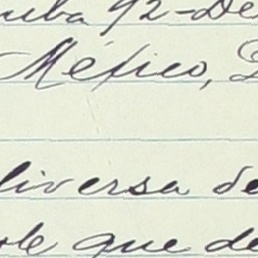 uba 92-De
México, D
diversa de
ole que de